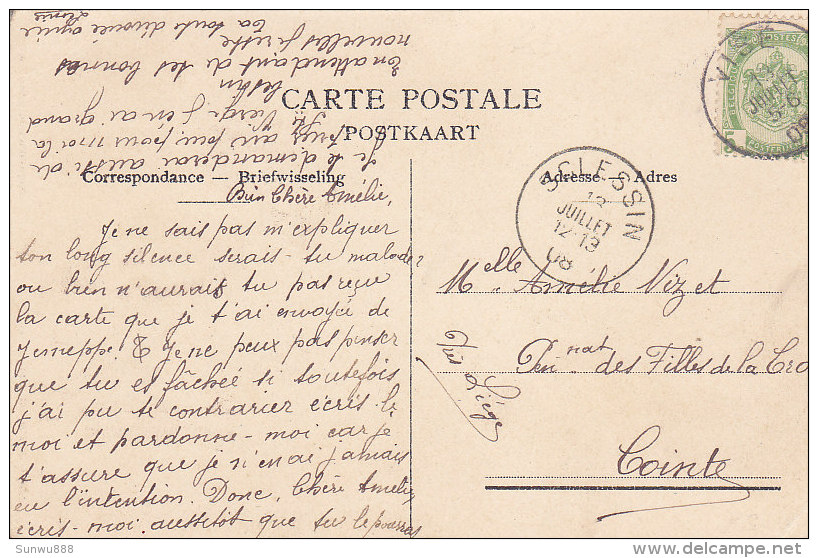 CARTE POSTALE
POSTKAART
Correspondance — Briefwisseling
Adresse — Adres
Bien Chère Amélie,
Je ne sais pas m'expliquer
ton long silence serais-tu malade?
ou bien n'aurais tu pas reçu
la carte que je t'ai envoyée de
Jemeppe. Je ne peux pas penser
que tu es fâchée si toutefois
j'ai pu te contrarier écris-le
moi et pardonne-moi car je
t'assure que je n'en ai jamais
eu l'intention. Donc, Chère Amélie,
écris-moi aussitôt que tu le pourras
Je te demanderai aussi de
pour moi la
j'en ai grand
besoin
En attendant de tes bonnes
nouvelles je reste
Ta toute dévouée amie
VISÉ
JUILLET
5-6
08
SCLESSIN
13
JUILLET
12-13
08
Melle Amélie Vizet
Pen.nat des Filles de la Cro
Cointe
Près Liège
Sunwu888
delcampe.net